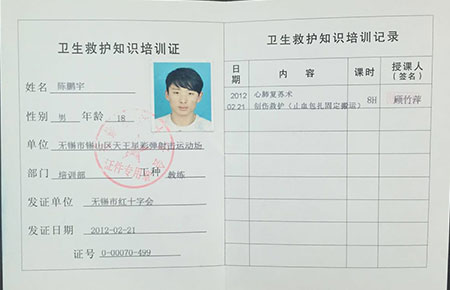 卫生救护知识培训证
姓名 陈鹏宇
性别 男 年龄 18
单位 无锡市锡山区天王星彩弹射击运动场
部门 培训部 工种 教练
发证单位 无锡市红十字会
发证日期 2012-02-21
证号 0-00070-499
证件专用章
卫生救护知识培训记录
日期 内容 课时 授课人(签名)
2012 心肺复苏术
02.21 创伤救护(止血包扎固定搬运) 8H 顾竹萍